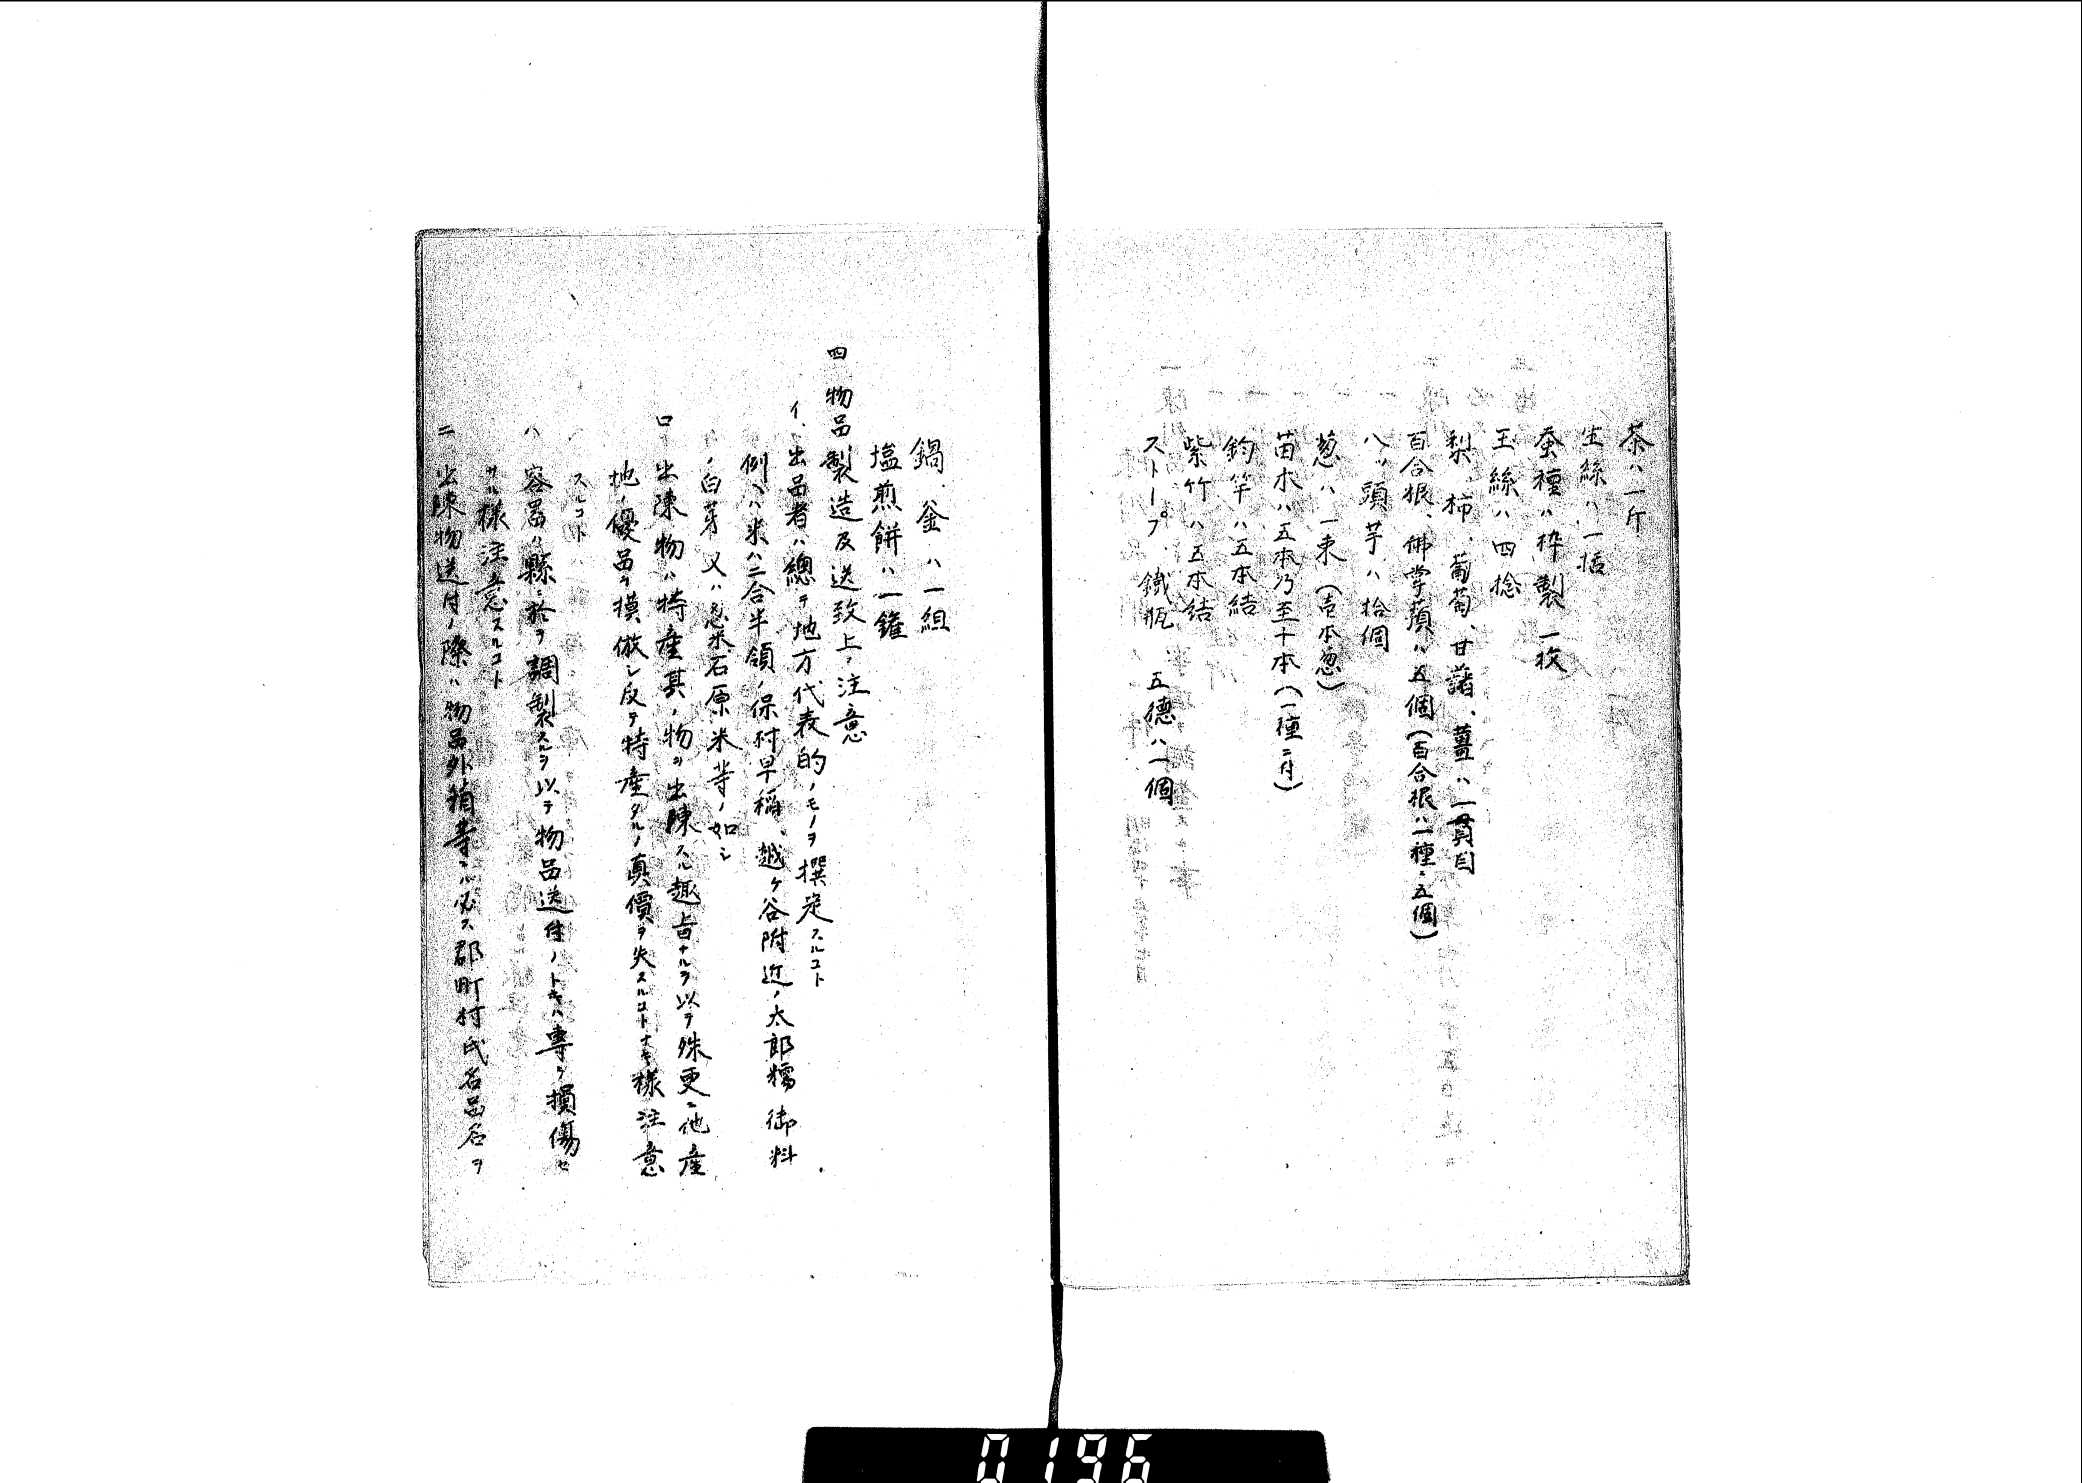 茶ハ一斤
生絲ハ一括
蚕種ハ枠製一枚
玉絲ハ四捻
梨、柿、葡萄、甘藷、薑ハ一貫目
百合根、佛掌薯ハ五個(百合根ハ一種ニ五個)
八ツ頭芋ハ拾個
葱ハ一束(壱本葱)
苗木ハ五本乃至十本(一種ニ付)
釣竿ハ五本結
紫竹ハ五本結
ストーブ、鐵瓶、五德ハ一個
鍋、釜ハ一組
塩煎餅ハ一鑵
四 物品製造及送致上ノ注意
イ、出品者ハ總テ地方代表的ノモノヲ撰定スルコト
例ヘハ米ハ二合半領ノ保村早稲、越ヶ谷附近ノ太郎糯御料
ノ白芽又ハ忍米石原米等ノ如シ
ロ 出陳物ハ特産其ノ物ヲ出陳スル趣旨ナルヲ以テ殊更ニ他産
地ノ優品ヲ摸倣シ反テ特産タルノ真價ヲ失スルコトナキ樣注意
スルコト
ハ 容器ハ縣ニ於テ調製スルヲ以テ物品送付ノトキハ專ラ損傷セ
サル樣注意スルコト
ニ 出陳物送付ノ際ハ物品外箱等ニハ必ス郡町村氏名品名ヲ
0196